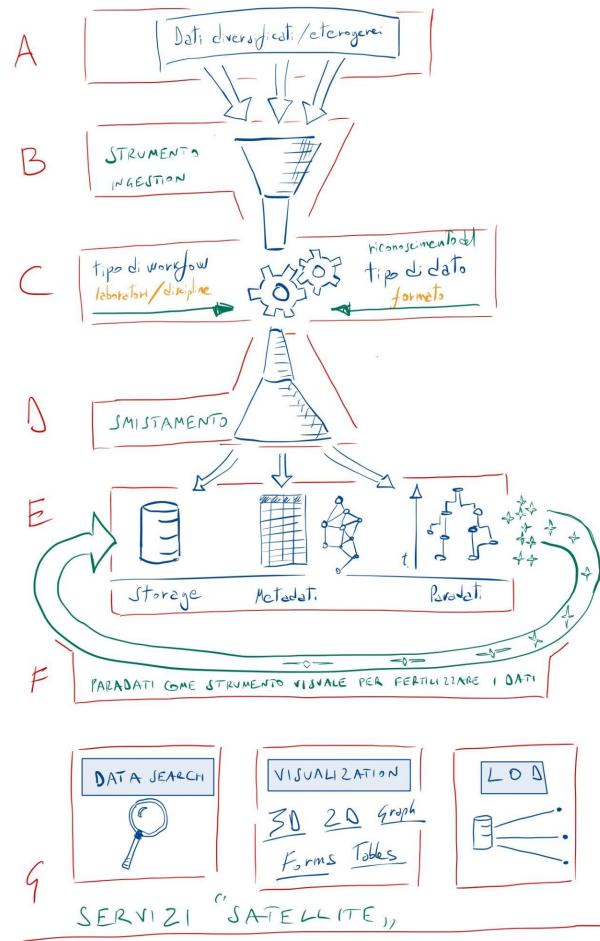 A
Dati diversificati/eterogenei
B
STRUMENTO
INGESTION
C
tipo di workflow
laboratori/discipline
riconoscimento del
tipo di dato
formato
D
SMISTAMENTO
E
t
Storage
Metadati
Paradati
F
PARADATI COME STRUMENTO VISUALE PER FERTILIZZARE I DATI
DATA SEARCH
VISUALIZATION
3D 2D Graph
Forms Tables
LOD
G
SERVIZI "SATELLITE"